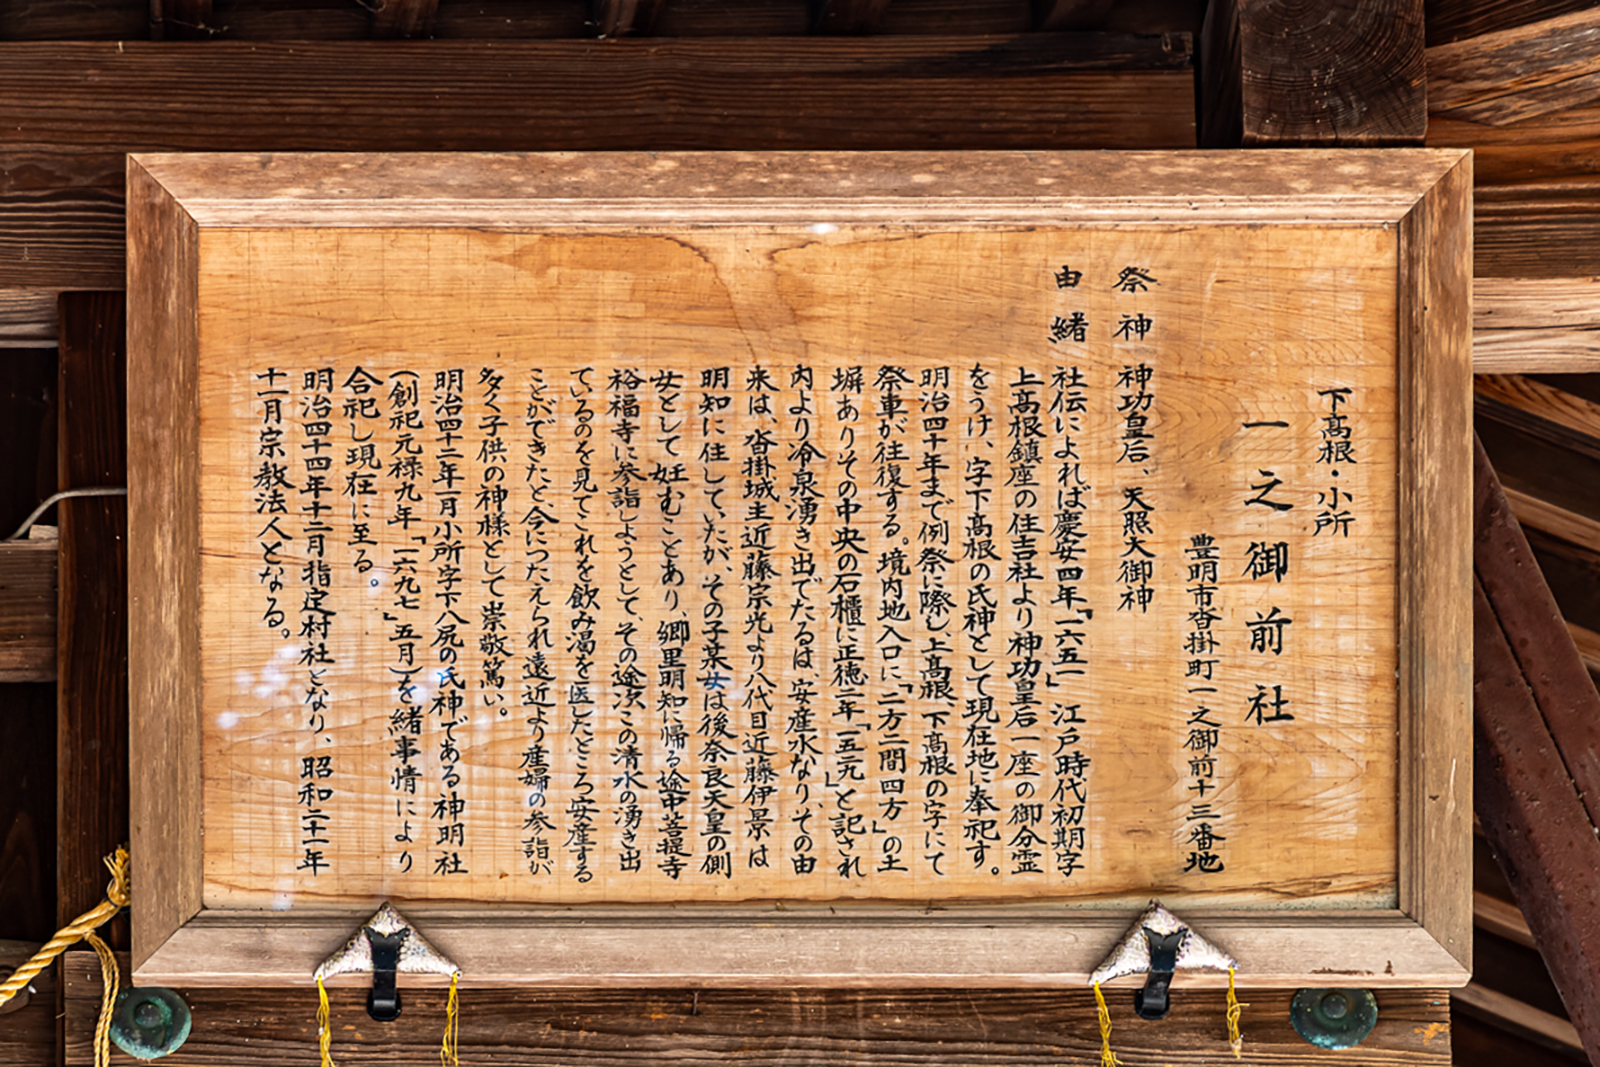 下高根・小所
一之御前社
豊明市沓掛町一之御前十三番地
祭神 神功皇后、天照大御神
由緒 社伝によれば慶安四年「一六五一」江戸時代初期字
上高根鎮座の住吉社より神功皇后一座の御分霊
をうけ、字下高根の氏神として現在地に奉祀す。
明治四十年まで例祭に際し、上高根、下高根の字にて
祭車が往復する。境内地入口に「二方二間四方」の土
塀ありその中央の石櫃に正徳二年「一五二九」と記され
内より冷泉湧き出でたるは、安産水なり、その由
来は、沓掛城主近藤宗光より八代目近藤伊景は
明知に住していたが、その子某女は後奈良天皇の側
女として妊むことあり、郷里明知に帰る途中菩提寺
裕福寺に参詣しようとして、その途次この清水の湧き出
ているのを見てこれを飲み渇を医したところ安産する
ことができたと、今につたえられ遠近より産婦の参詣が
多く子供の神様として崇敬篤い。
明治四十二年一月小所字下八尻の氏神である神明社
(創祀元禄九年「一六九七」五月)を緒事情により
合祀し現在に至る。
明治四十四年十二月指定村社となり、昭和二十一年
十二月宗教法人となる。